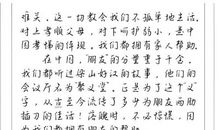 难关。这一切教会我们不孤单地生活。
对上孝顺父母，对下呵护弱小，是中
国孝悌的传统。我们都拥有家人帮助。
在中国，“朋友”的分量重于千金。
我们都听过梁山好汉的故事，他们的
会议厅名为“聚义堂”。正是为了这个“义”
字，从古至今流传了多少为朋友两肋
插刀的佳话！落魄时，不必惊慌，因
为我们都拥有朋友的帮助。